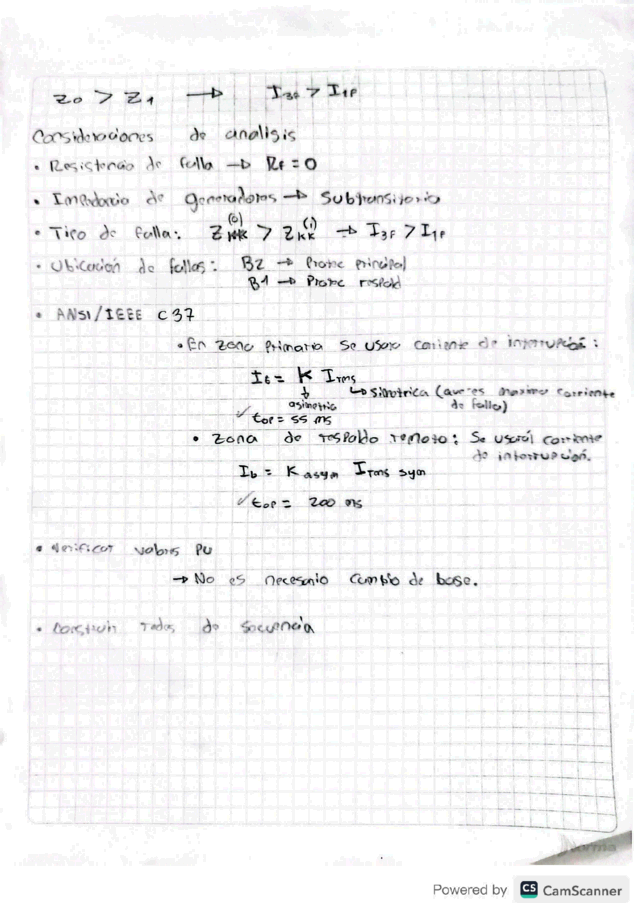 Z0 > Z1 → I3F > I1F
Consideraciones de analisis
• Resistencia de falla → RF = 0
• Impedancia de generadores → Subtransitoria
• Tipo de falla: Zkk(0) > Zkk(1) → I3F > I1F
• Ubicación de fallas: B2 → Protec principal
B1 → Protec respald
• ANSI/IEEE C37
• En zona Primaria se usara corriente de interrupción:
Ib = K Irms
↓ asimetria
↳ Simetrica (que es maxima corriente de falla)
✓ top = 55 ms
• Zona de respaldo remoto: Se usará corriente de interrupción.
Ib = Kasym Irms sym
✓ top = 200 ms
• Verificar valores PU
→ No es necesario cambio de base.
• Construir redes de secuencia
Norma
Powered by CS CamScanner